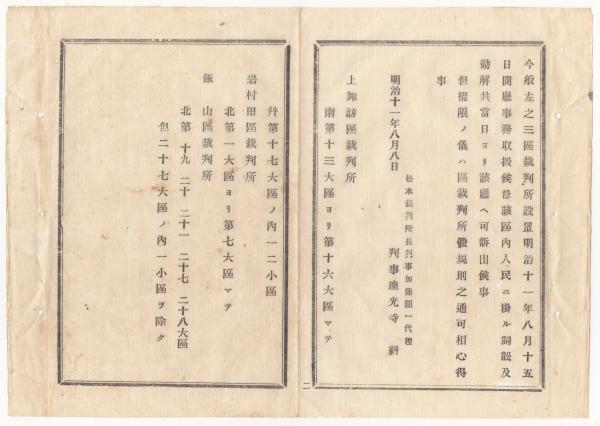 今般左之三區裁判所設置明治十一年八月十五
日開廳事務取扱候條該區內人民ニ掛ル詞訟及
勸解共當日ヨリ該廳ヘ可訴出候事
但權限ノ儀ハ區裁判所假規則之通可相心得
事
明治十一年八月八日
松本裁判所長判事加藤祖一代理
判事座光寺
上諏訪區裁判所
南第十三大區ヨリ第十六大區マテ
幷第十七大區ノ內一二小區
岩村田區裁判所
北第一大區ヨリ第七大區マテ
飯山區裁判所
北第十九二十二十一二十七二十八大區
但二十七大區ノ內一小區ヲ除ク
二